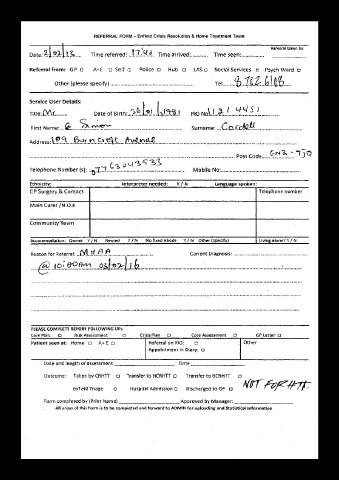 REFERRAL FORM – Enfield Crisis Resolution & Home Treatment Team
Referral taken by:
Date: 2/02/13 Time referred: 17:40 Time arrived: Time seen:
Referral from: GP □ A+E □ Self □ Police □ Hub □ LAS □ Social Services □ Psych Ward □
Other (please specify) Tel:
Service User Details:
Title: Mr. Date of Birth: /1981 RiO No: 11214451
First Name: Simon Surname: Cordell
Address: 109 Burncroft Avenue
Post Code: EN3 - 7JQ
Telephone Number (s): Mobile No:
Ethnicity: Interpreter needed: Y / N Language spoken:
GP Surgery & Contact Telephone number
Main Carer / N.O.K
Community Team
Accommodation: Owner Y / N Rented Y / N No fixed Abode Y / N Other (specify) Living alone? Y / N
Reason for Referral: MHAA Current Diagnosis:
@ 10:00AM 03/02/16
PLEASE COMPLETE BEFORE FOLLOWING UP:
Care Plan: □ Risk Assessment □ Crisis Plan □ Core Assessment □ GP Letter □
Patient seen at: Home □ A+E □ Referral on RiO: □ Other
Appointment in Diary: □
Date and length of assessment Time
Outcome: Taken by CRHTT □ Transfer to BCRHTT □ Transfer to HCRHTT □
Enfield Triage □ Hospital Admission □ Discharged to GP □ NOT FOR HTT.
Form completed by (Print Name) Approved by Manager:
All areas of this form is to be completed and forward to ADMIN for uploading and Statistical Information